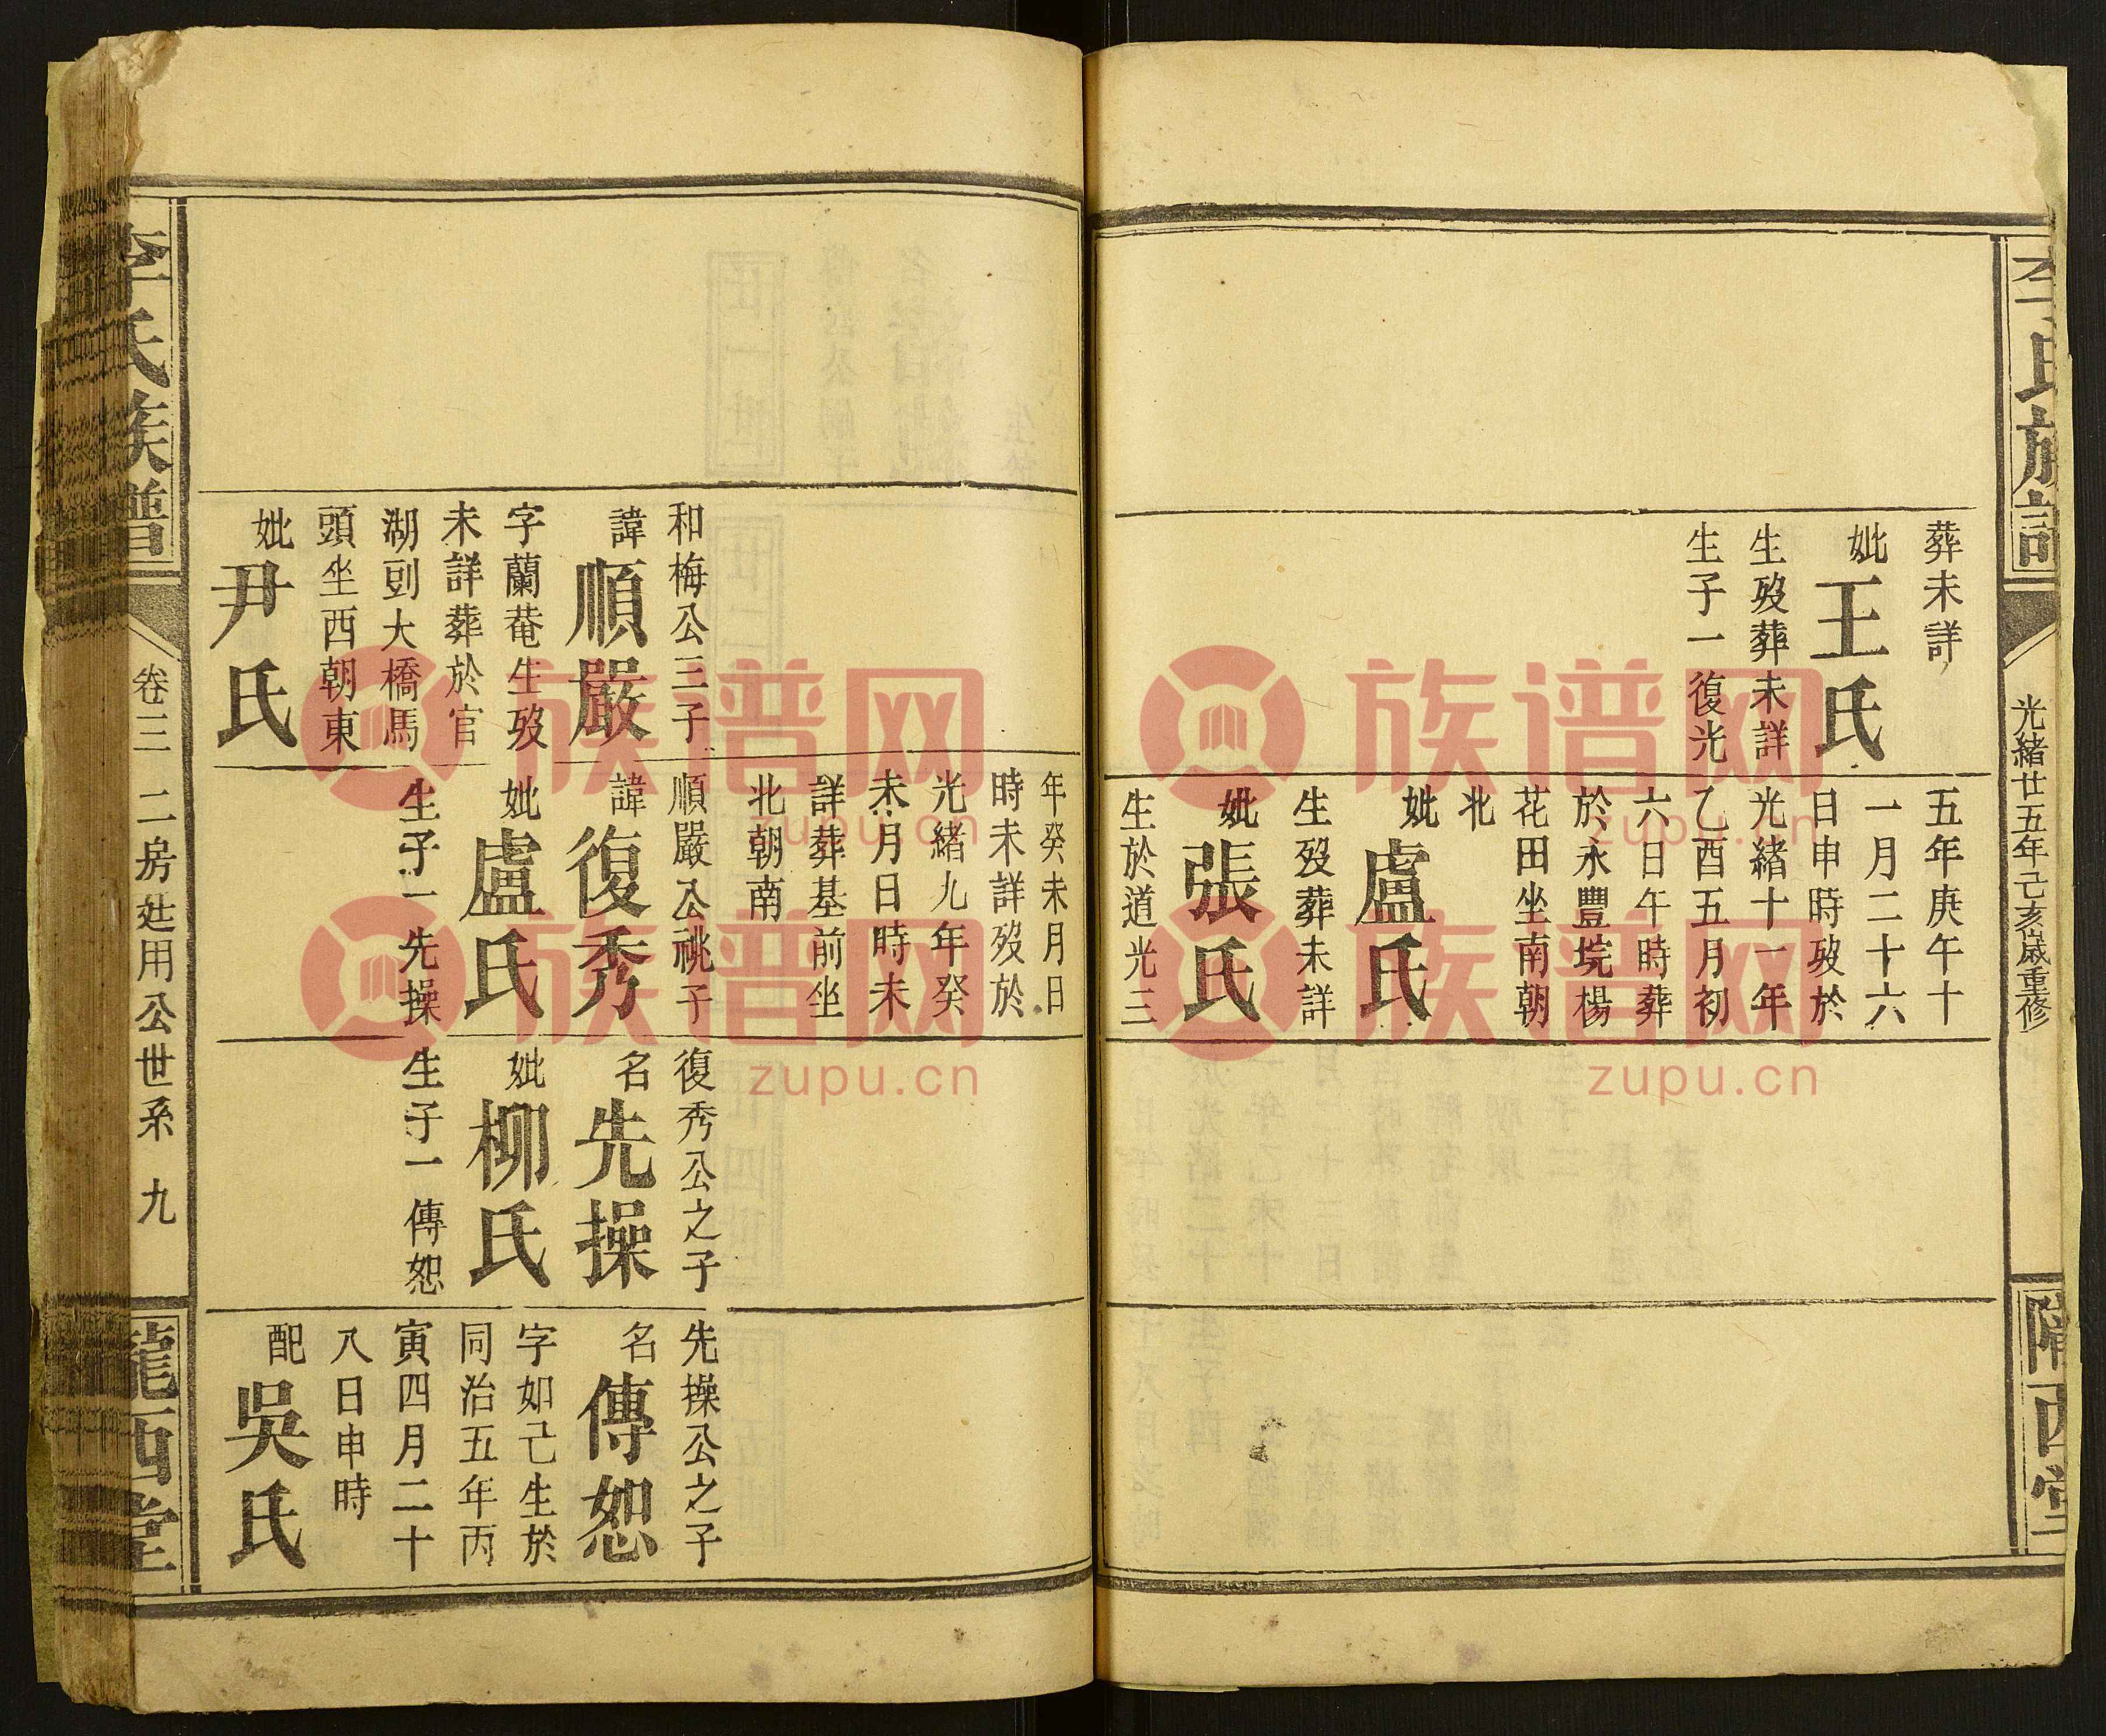 李氏族譜
光緒廿五年己亥歲重修
隴西堂
葬未詳
妣王氏
生歿葬未詳
生子一復光
五年庚午十
一月二十六
日申時歿於
光緒十一年
乙酉五月初
六日午時葬
於永豐垸楊
花田坐南朝
北
妣盧氏
生歿葬未詳
妣張氏
生於道光三
年癸未月日
時未詳歿於
光緒九年癸
未月日時未
詳葬基前坐
北朝南
和梅公三子
諱順嚴
字蘭菴生歿
未詳葬於官
湖剅大橋馬
頭坐西朝東
妣尹氏
順嚴公祧子
諱復秀
妣盧氏
生子一先操
復秀公之子
名先操
妣柳氏
生子一傳恕
先操公之子
名傳恕
字如己生於
同治五年丙
寅四月二十
八日申時
配吳氏
李氏族譜
卷三
二房廷用公世系
九
隴西堂
族谱网
zupu.cn
族谱网
zupu.cn
族谱网
zupu.cn
族谱网
zupu.cn